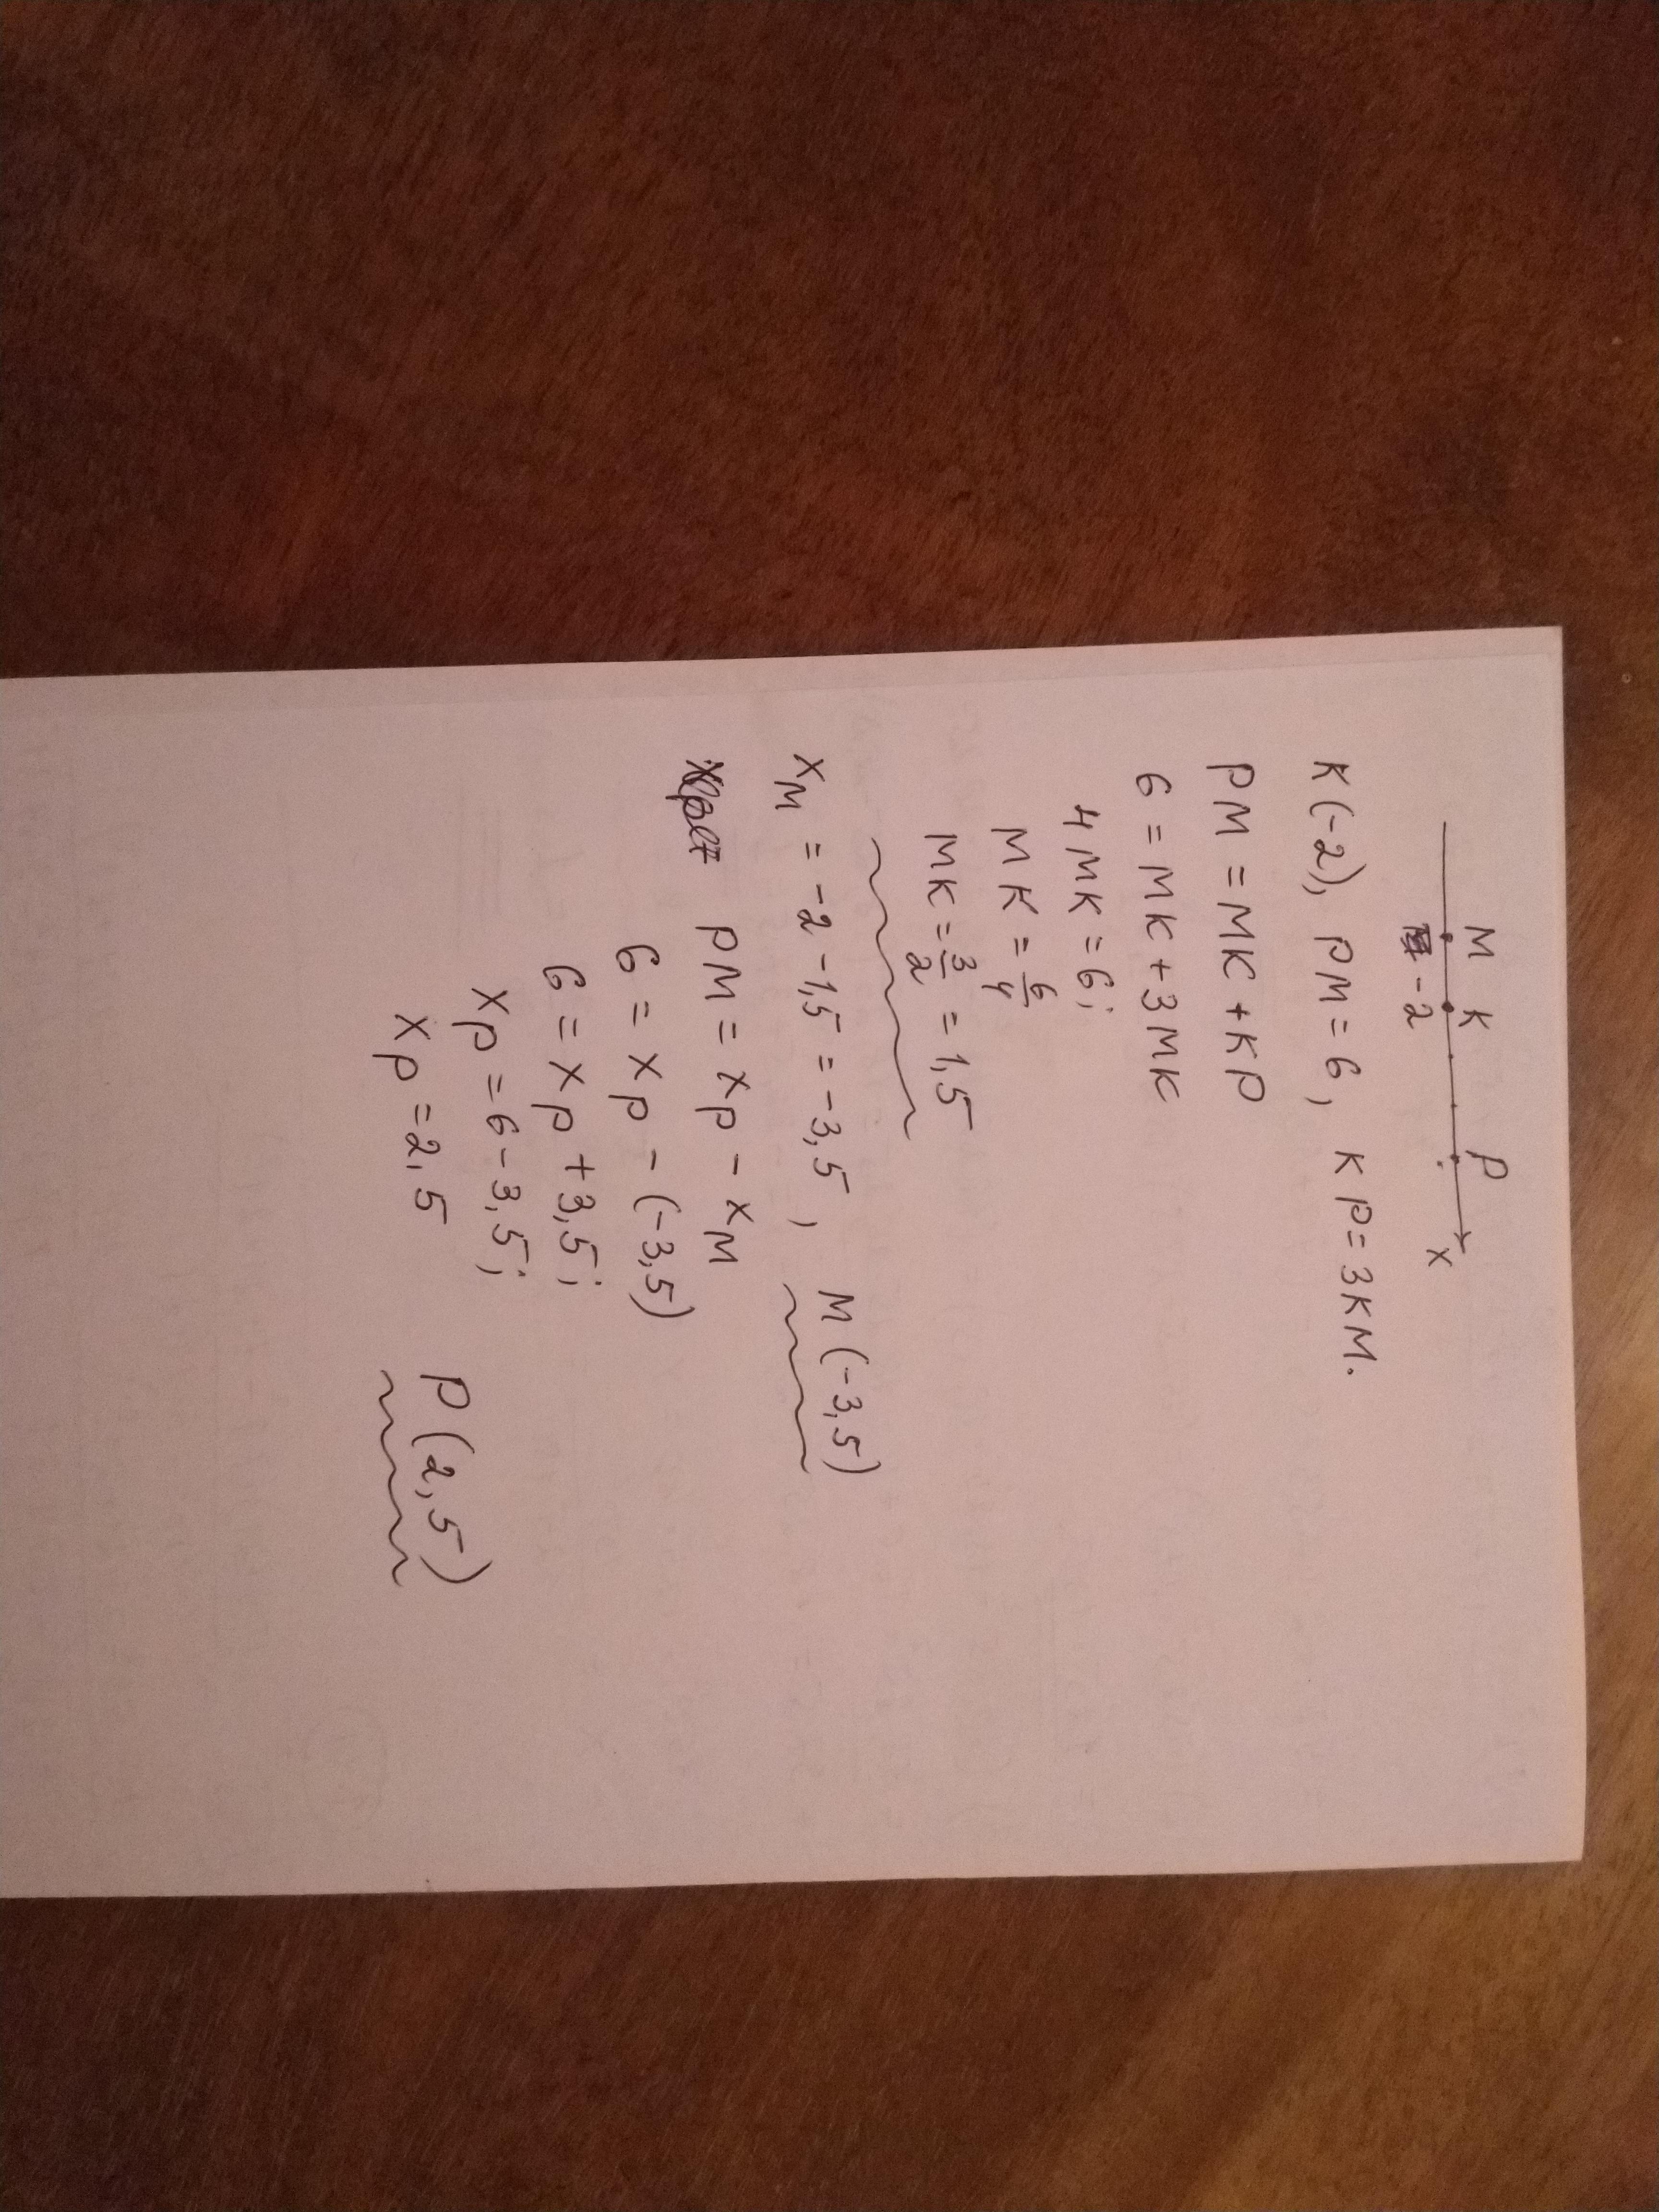 M K P
-2 x
K(-2), PM = 6, KP = 3KM.
PM = MK + KP
6 = MK + 3MK
4MK = 6;
MK = 6/4
MK = 3/2 = 1,5
xM = -2 - 1,5 = -3,5, M(-3,5)
PM = xP - xM
6 = xP - (-3,5)
6 = xP + 3,5;
xP = 6 - 3,5;
xP = 2,5 P(2,5)